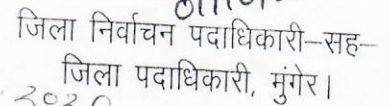 जिला निर्वाचन पदाधिकारी–सह–
जिला पदाधिकारी, मुंगेर।